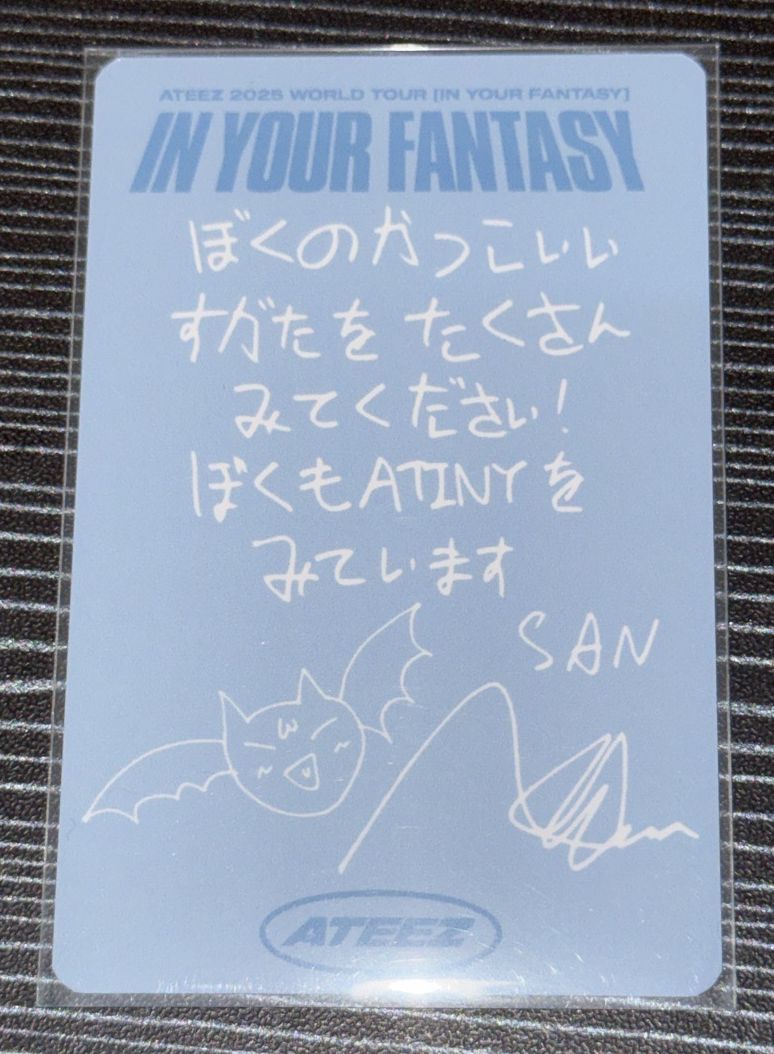 ATEEZ 2025 WORLD TOUR [IN YOUR FANTASY]
IN YOUR FANTASY
ぼくのかっこいい
すがたをたくさん
みてください!
ぼくもATINYを
みています
SAN
ATEEZ